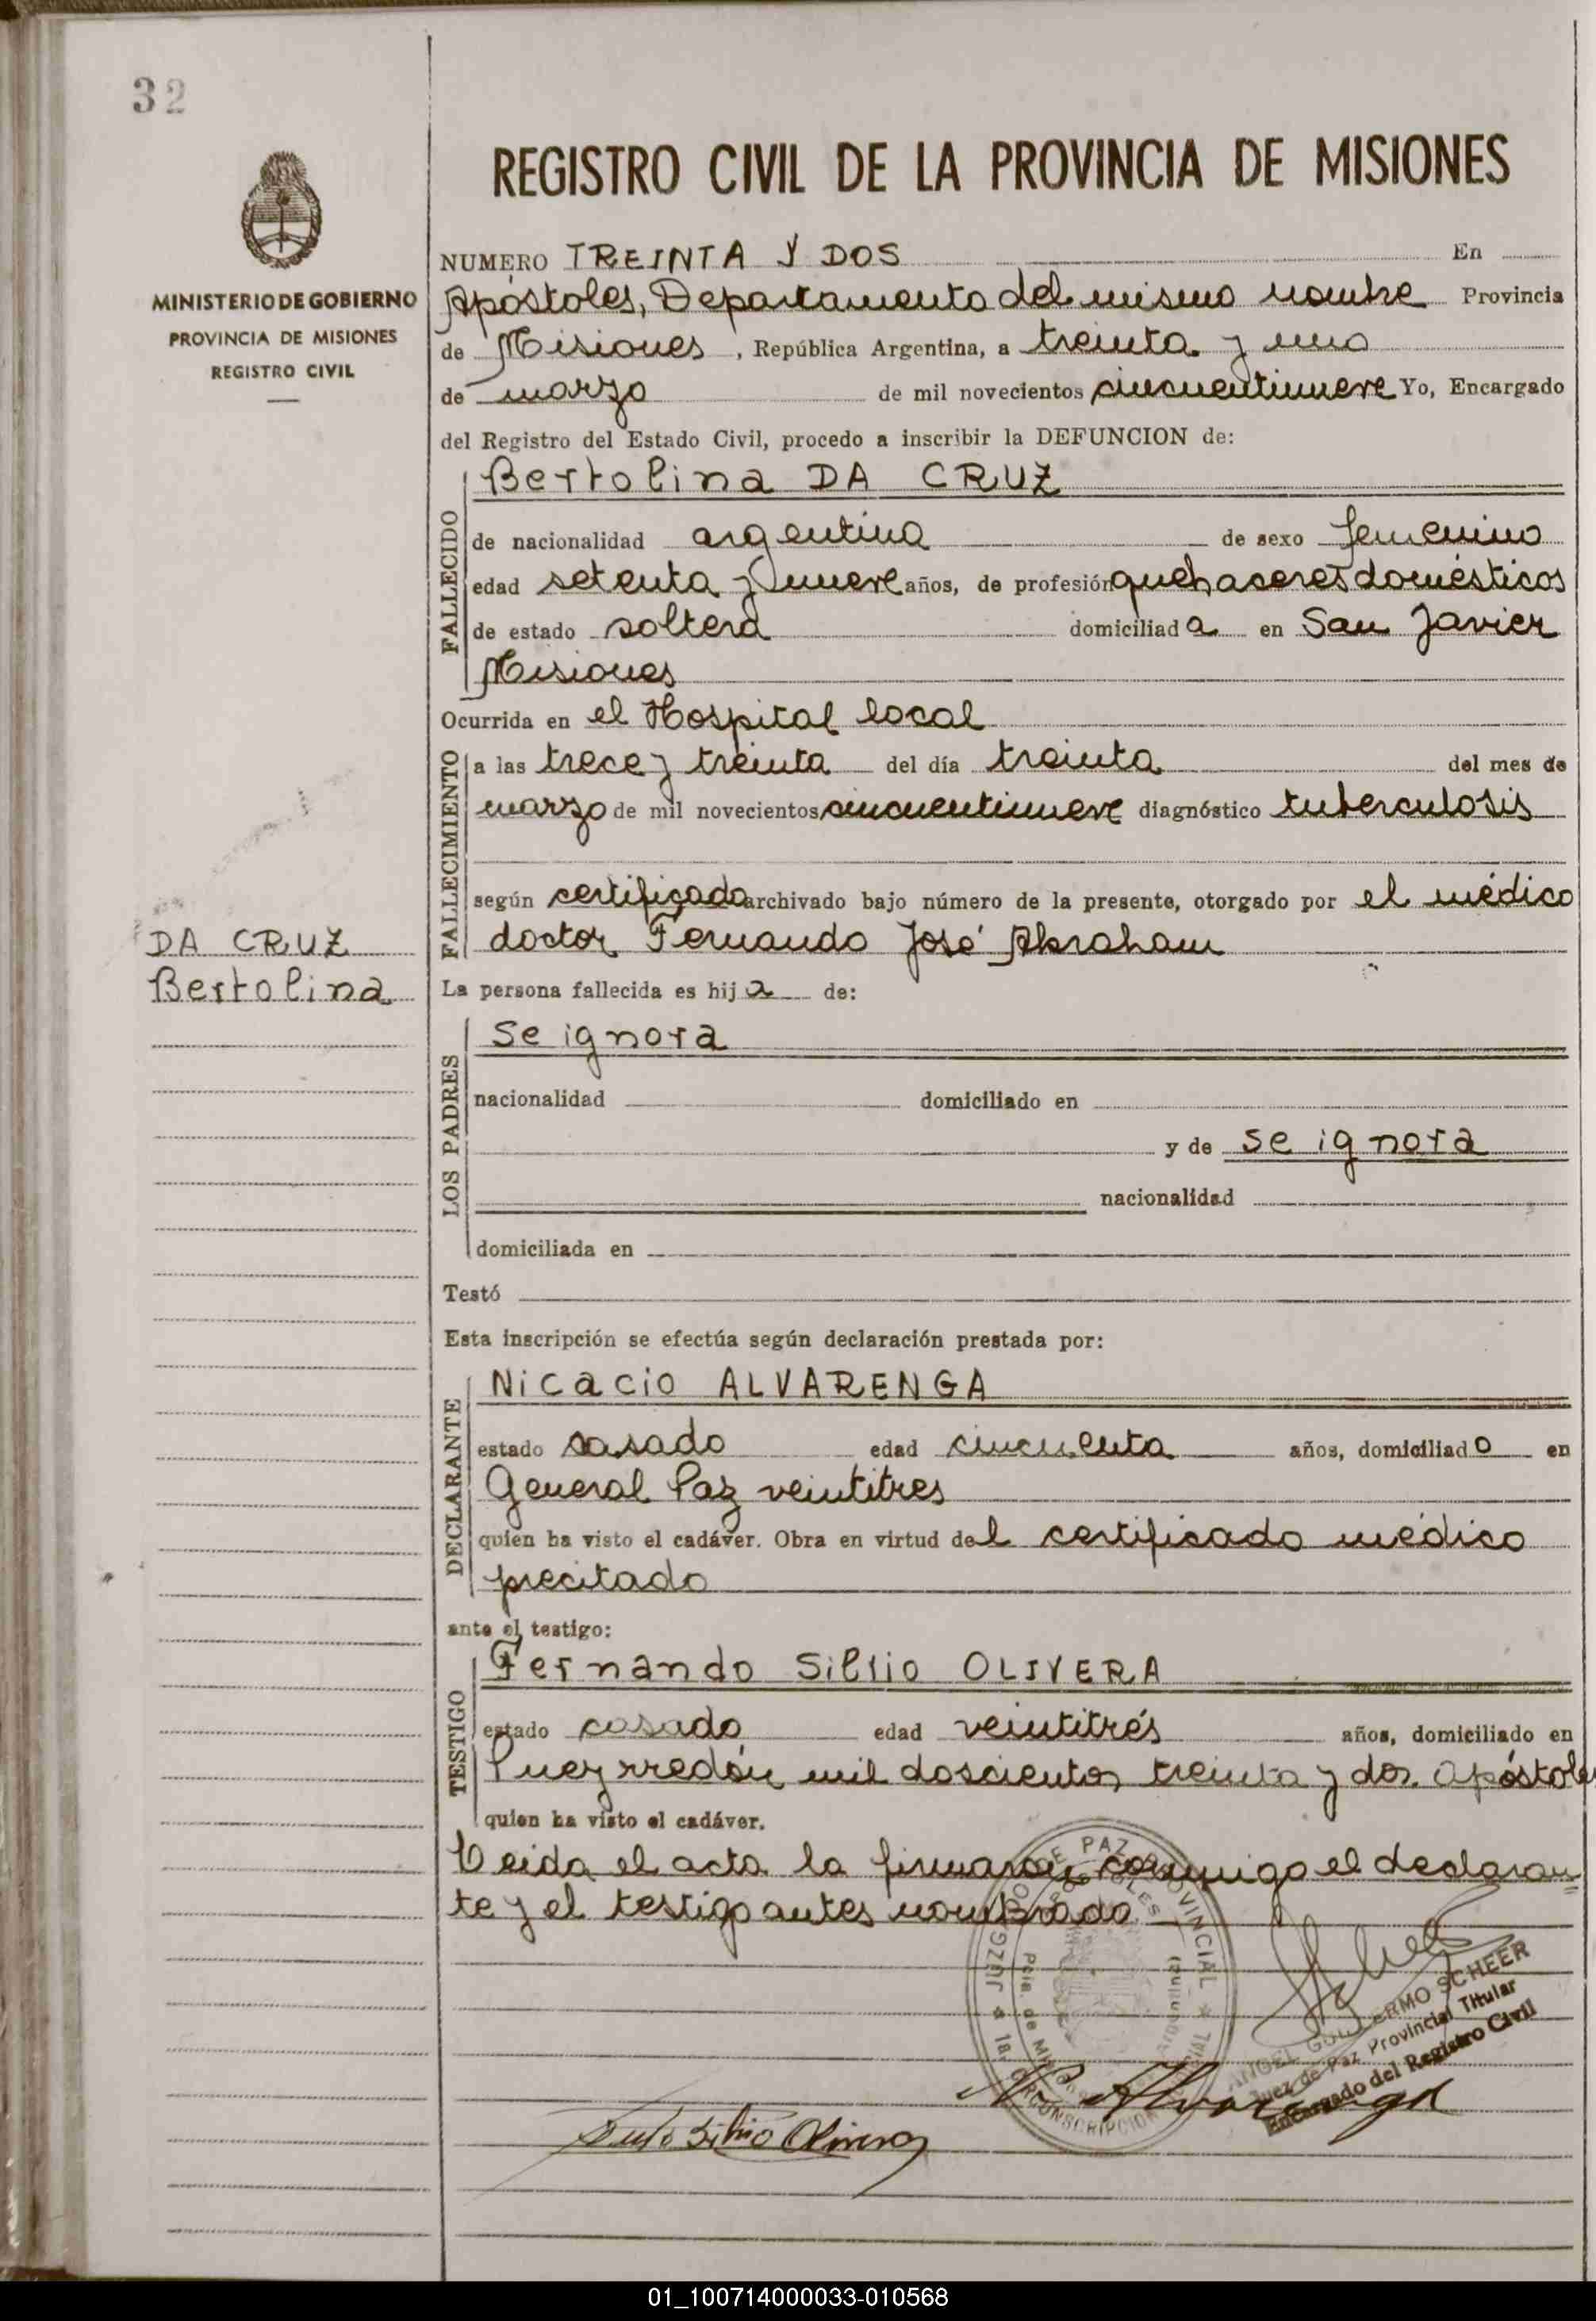 32
REGISTRO CIVIL DE LA PROVINCIA DE MISIONES
MINISTERIO DE GOBIERNO
PROVINCIA DE MISIONES
REGISTRO CIVIL
NUMERO TREINTA Y DOS En
Apóstoles, Departamento del mismo nombre Provincia
de Misiones, República Argentina, a treinta y uno
de marzo de mil novecientos cincuentinueve Yo, Encargado
del Registro del Estado Civil, procedo a inscribir la DEFUNCION de:
FALLECIDO
Bertolina DA CRUZ
de nacionalidad argentina de sexo femenino
edad setenta y nueve años, de profesión quehaceres domésticos
de estado soltera domiciliada en San Javier
Misiones
Ocurrida en el Hospital local
FALLECIMIENTO
a las trece y treinta del día treinta del mes de
marzo de mil novecientos cincuentinueve diagnóstico tuberculosis
según certificado archivado bajo número de la presente, otorgado por el médico
doctor Fernando José Abraham
DA CRUZ
Bertolina
La persona fallecida es hija de:
LOS PADRES
Se ignora
nacionalidad domiciliado en
y de se ignora
nacionalidad
domiciliada en
Testó
Esta inscripción se efectúa según declaración prestada por:
DECLARANTE
Nicacio ALVARENGA
estado casado edad cincuenta años, domiciliado en
General Paz veintitres
quien ha visto el cadáver. Obra en virtud del certificado médico
precitado
ante el testigo:
TESTIGO
Fernando Silvio OLIVERA
estado casado edad veintitrés años, domiciliado en
Pueyrredón mil doscientos treinta y dos Apóstoles
quien ha visto el cadáver.
Leida el acta la firmaron conmigo el declaran=
te y el testigo antes nombrado
JUZGADO DE PAZ PROVINCIAL
APOSTOLES
Pcia. de Misiones
CIRCUNSCRIPCION JUDICIAL
ANGEL GUILLERMO SCHEER
Juez de Paz Provincial Titular
Encargado del Registro Civil
N. Alvarenga
Silvio Olivera
01_100714000033-010568